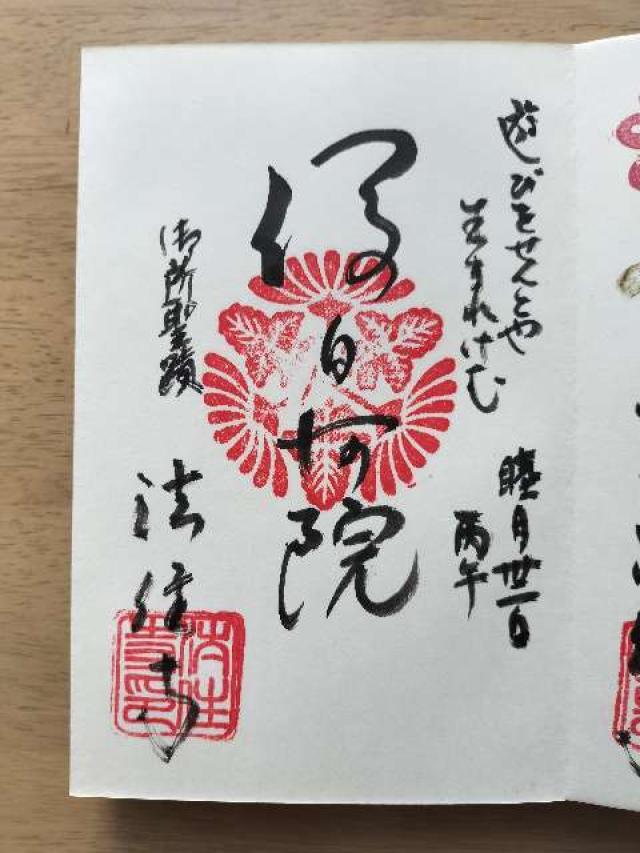 遊びをせんとや
生まれけむ
睦月卅一日
丙午
後白河院
御所聖蹟
法住寺